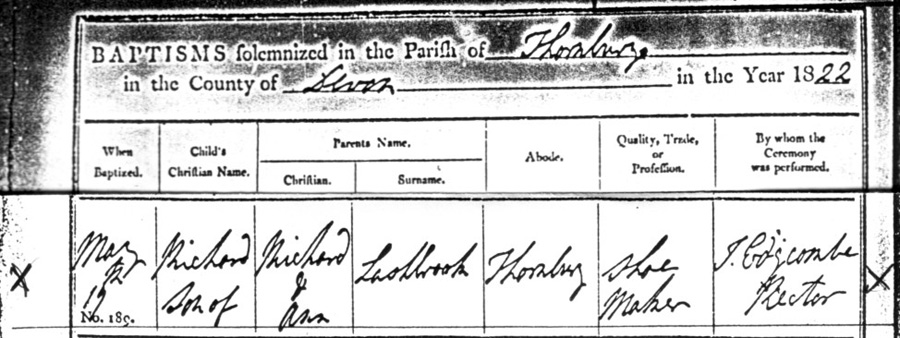 BAPTISMS solemnized in the Parish of Thornbury
in the County of Devon in the Year 1822
When Baptized.
Child's Christian Name.
Parents Name.
Christian.
Surname.
Abode.
Quality, Trade, or Profession.
By whom the Ceremony was performed.
May
19
No. 189.
Richard
Son of
Richard
&
Ann
Lashbrook
Thornbury
Shoe
Maker
J. Edgcombe
Rector